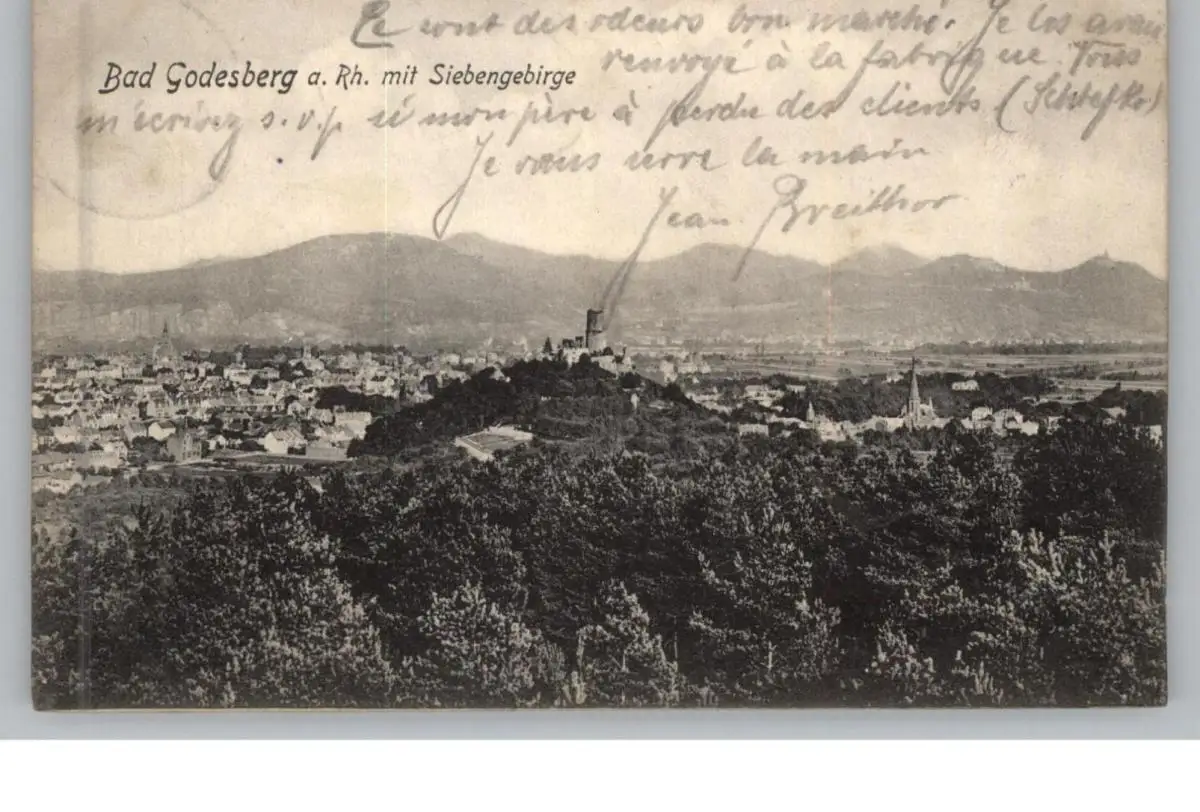 Ce sont des odeurs bon marché. Je les avais
renvoyé à la fabrique. Tous
Bad Godesberg a. Rh. mit Siebengebirge
m'écrivez s.v.p. si mon père à perdu des clients
Je vous serre la main
Jean Breithor